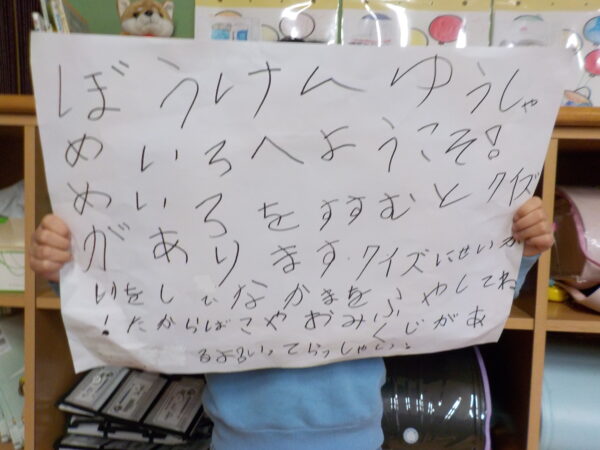 ぼうけん ゆうしゃ
めいろへようこそ!
めいろをすすむとクイズ
があります.クイズにせいか
いをしてなかまをふやしてね
!たからばこやおみくじがあ
るよ いってらっしゃい。